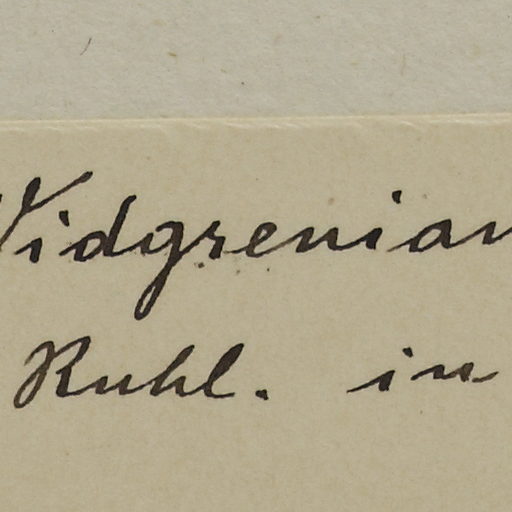 Widgrenian
Ruhl. in